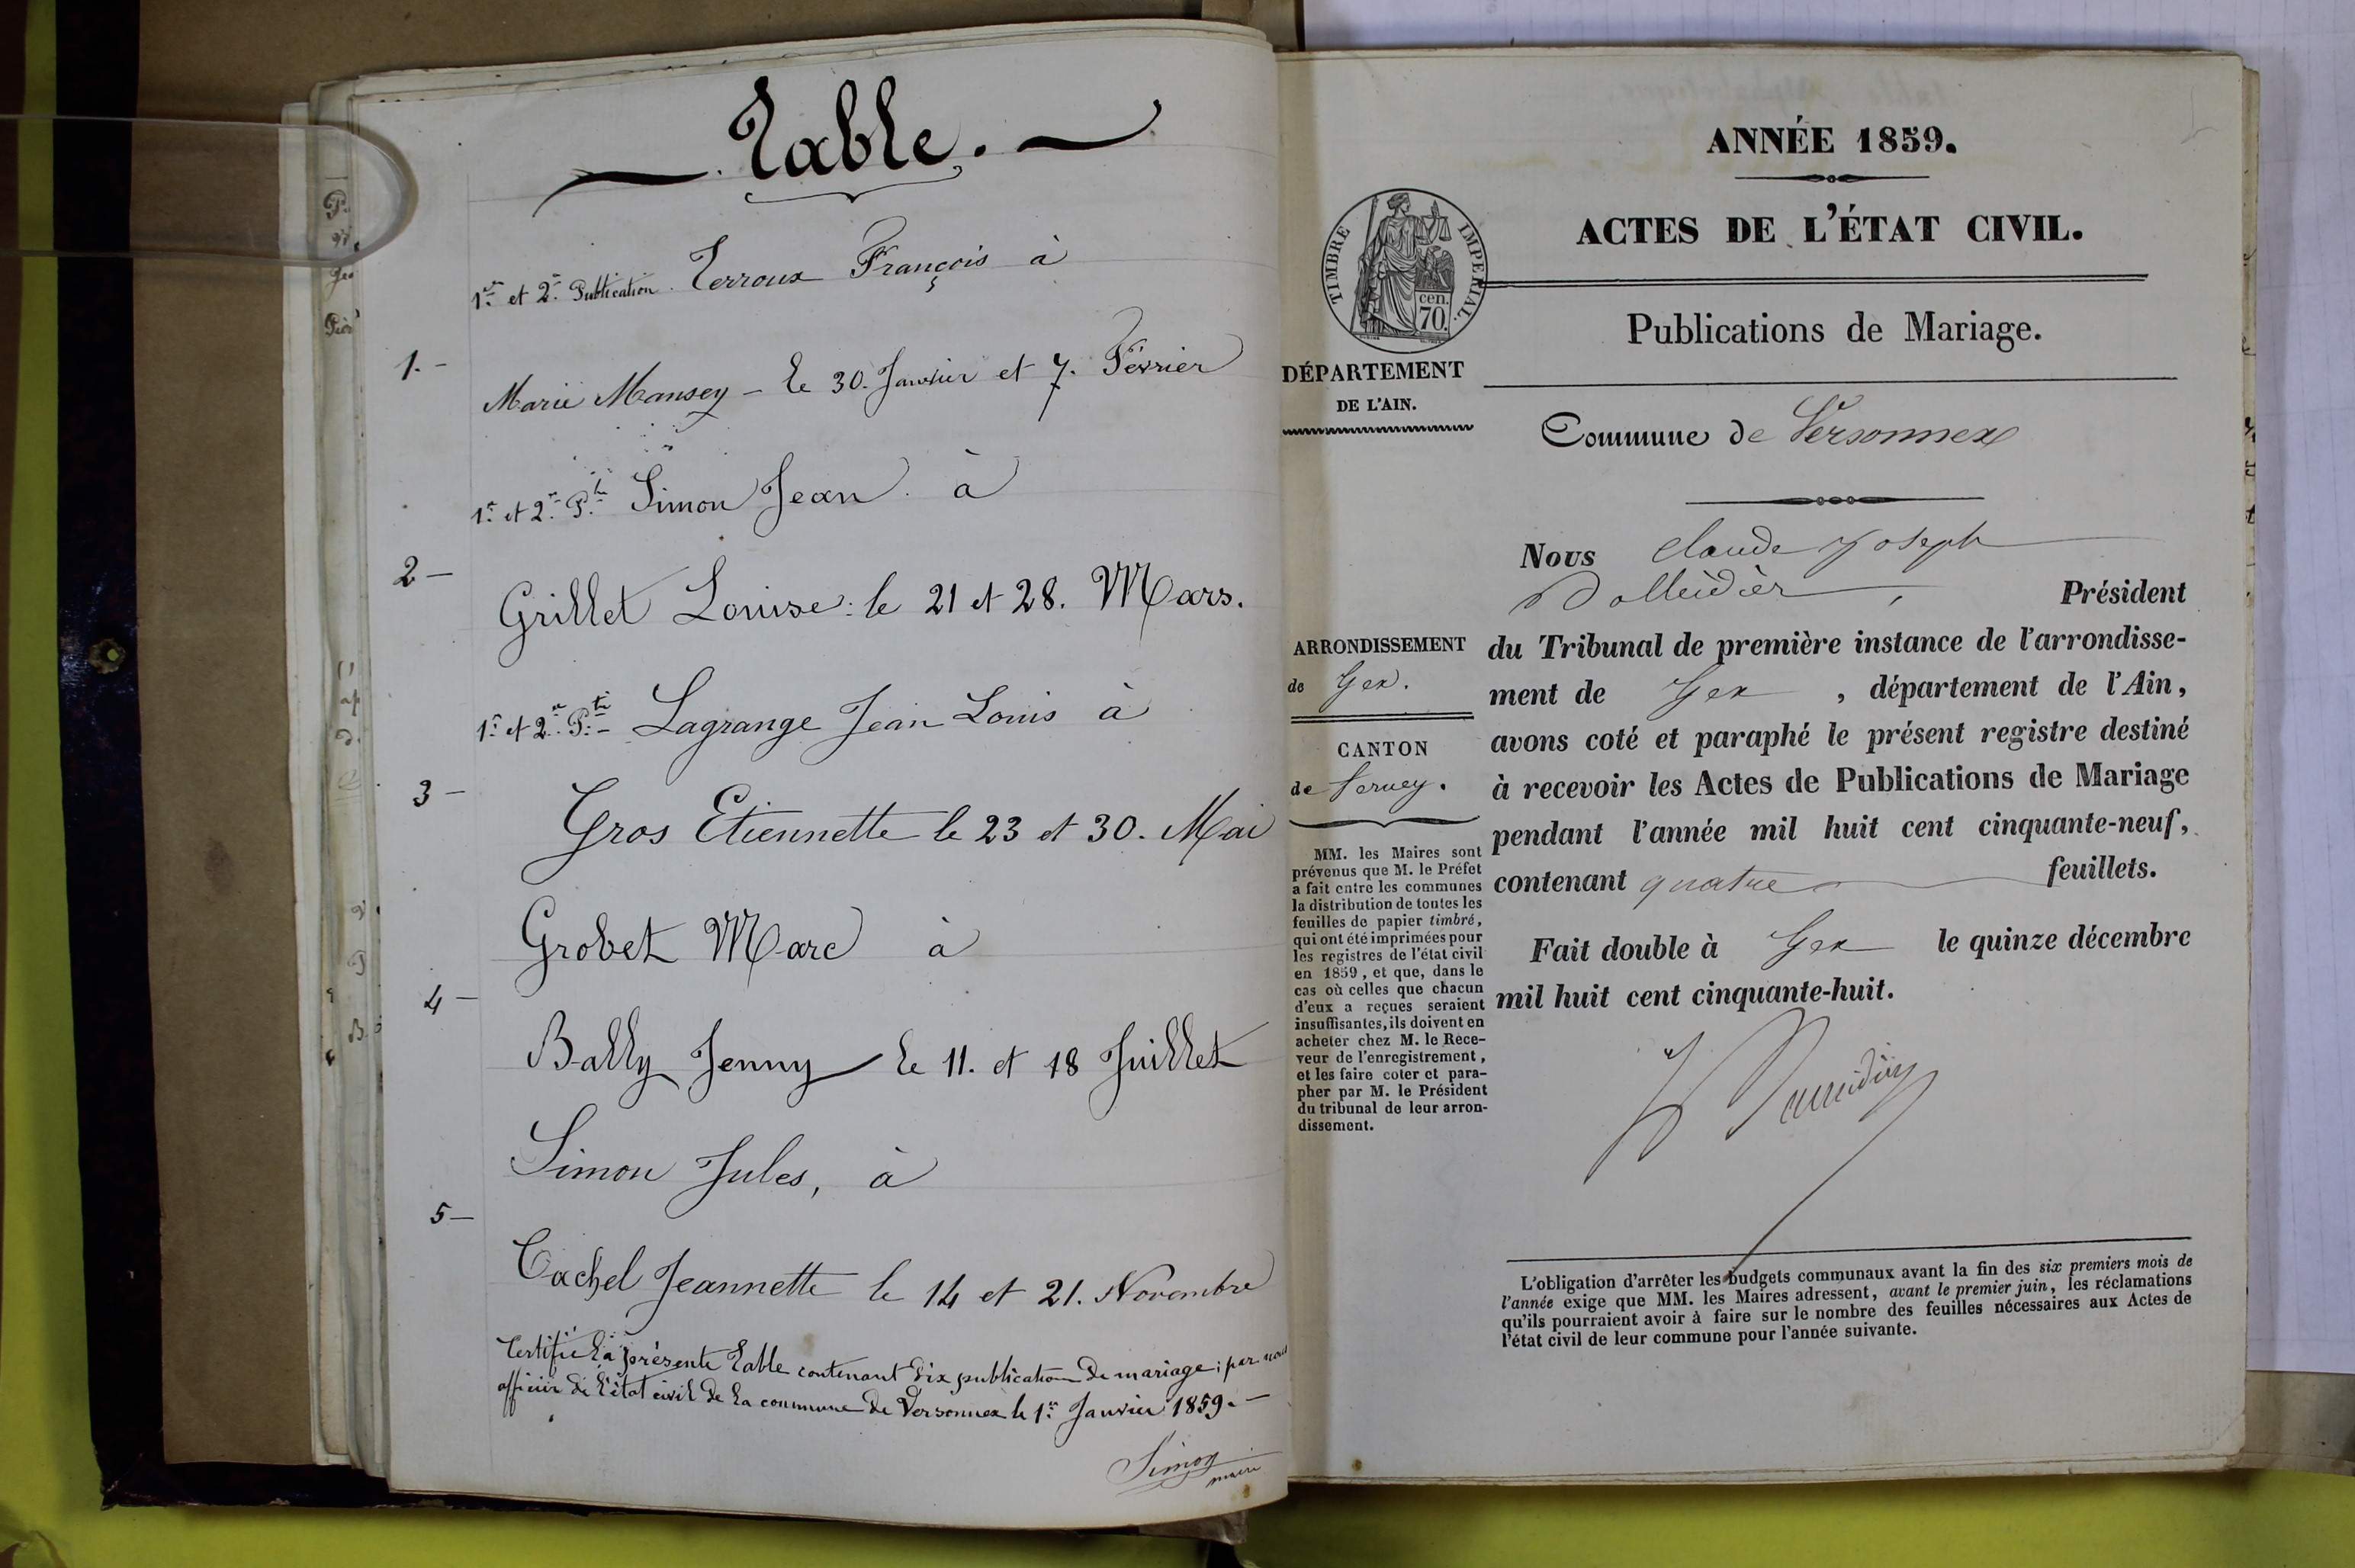 Table.
1re et 2e Publication Terroux François à
1. -
Marie Mansey - le 30. Janvier et 7. Février
1re et 2e Pti Simon Jean à
2 -
Grillet Louise : le 21 et 28. Mars.
1re et 2e Pti - Lagrange Jean Louis à
3 -
Gros Etiennette le 23 et 30. Mai
Grobet Marc à
4 -
Bally Jenny le 11. et 18 Juillet
Simon Jules, à
5 -
Cachel Jeannette le 14 et 21. Novembre
Certifié la présente Table contenant dix publication de mariage ; par nous
officier de l'état civil de la commune de Versonnex le 1er Janvier 1859. -
Simon
maire
ANNÉE 1859.
ACTES DE L'ÉTAT CIVIL.
TIMBRE IMPERIAL.
cen.
70.
Publications de Mariage.
DÉPARTEMENT
DE L'AIN.
Commune de Versonnex
Nous Claude Joseph
Président
ARRONDISSEMENT
de Gex.
CANTON
de Ferney.
MM. les Maires sont
prévenus que M. le Préfet
a fait entre les communes
la distribution de toutes les
feuilles de papier timbré,
qui ont été imprimées pour
les registres de l'état civil
en 1859, et que, dans le
cas où celles que chacun
d'eux a reçues seraient
insuffisantes, ils doivent en
acheter chez M. le Rece-
veur de l'enregistrement,
et les faire coter et para-
pher par M. le Président
du tribunal de leur arron-
dissement.
du Tribunal de première instance de l'arrondisse-
ment de Gex, département de l'Ain,
avons coté et paraphé le présent registre destiné
à recevoir les Actes de Publications de Mariage
pendant l'année mil huit cent cinquante-neuf,
contenant quatre feuillets.
Fait double à Gex le quinze décembre
mil huit cent cinquante-huit.
L'obligation d'arrêter les budgets communaux avant la fin des six premiers mois de
l'année exige que MM. les Maires adressent, avant le premier juin, les réclamations
qu'ils pourraient avoir à faire sur le nombre des feuilles nécessaires aux Actes de
l'état civil de leur commune pour l'année suivante.